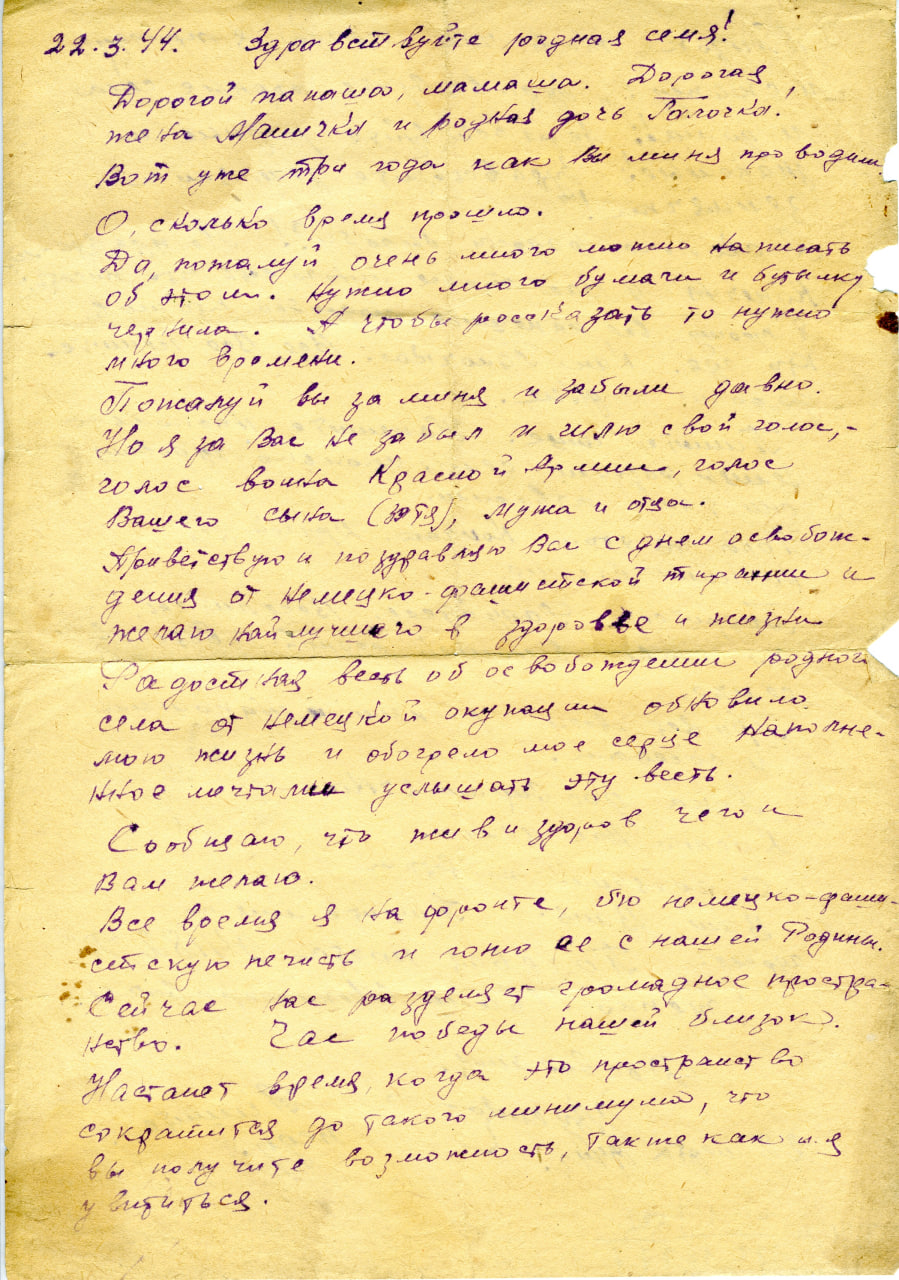 22.3.44. Здравствуйте родная семя!
Дорогой папаша, мамаша. Дорогая
жена Маничка и родная дочь Галочка!
Вот уже три года как Вы миня проводили
О, сколько время прошло.
Да, пожалуй очень много можно написать
об этом. Нужно много бумачи и бутылку
чернила. А чтобы россказать то нужно
много времени.
Пожалуй вы за миня и забыли давно.
Но я за Вас не забыл и шлю свой голос,-
голос воина Красной Армии, голос
Вашего сына (зятя), мужа и отца.
Приветствую и поздравляю Вас с днем освобож-
дения от немецко-фашистской тирании и
желаю найлучшего в здоровье и жизни
Радостная весть об освобождении родного
села от немецкой окупации обновило
мою жизнь и обогрело мое серце наполне-
нное мечтами услышать эту весть.
Сообщаю, что жив и здоров чего и
Вам желаю.
Все время я на фронте, бю немецко-фаши-
стскую нечисть и гоню ее с нашей Родины.
Сейчас нас разделяет громадное простра-
нство. Час победы нашей близок.
Настанет время, когда это пространство
сократится до такого минимума, что
вы получите возможность, также как и я
увититься.